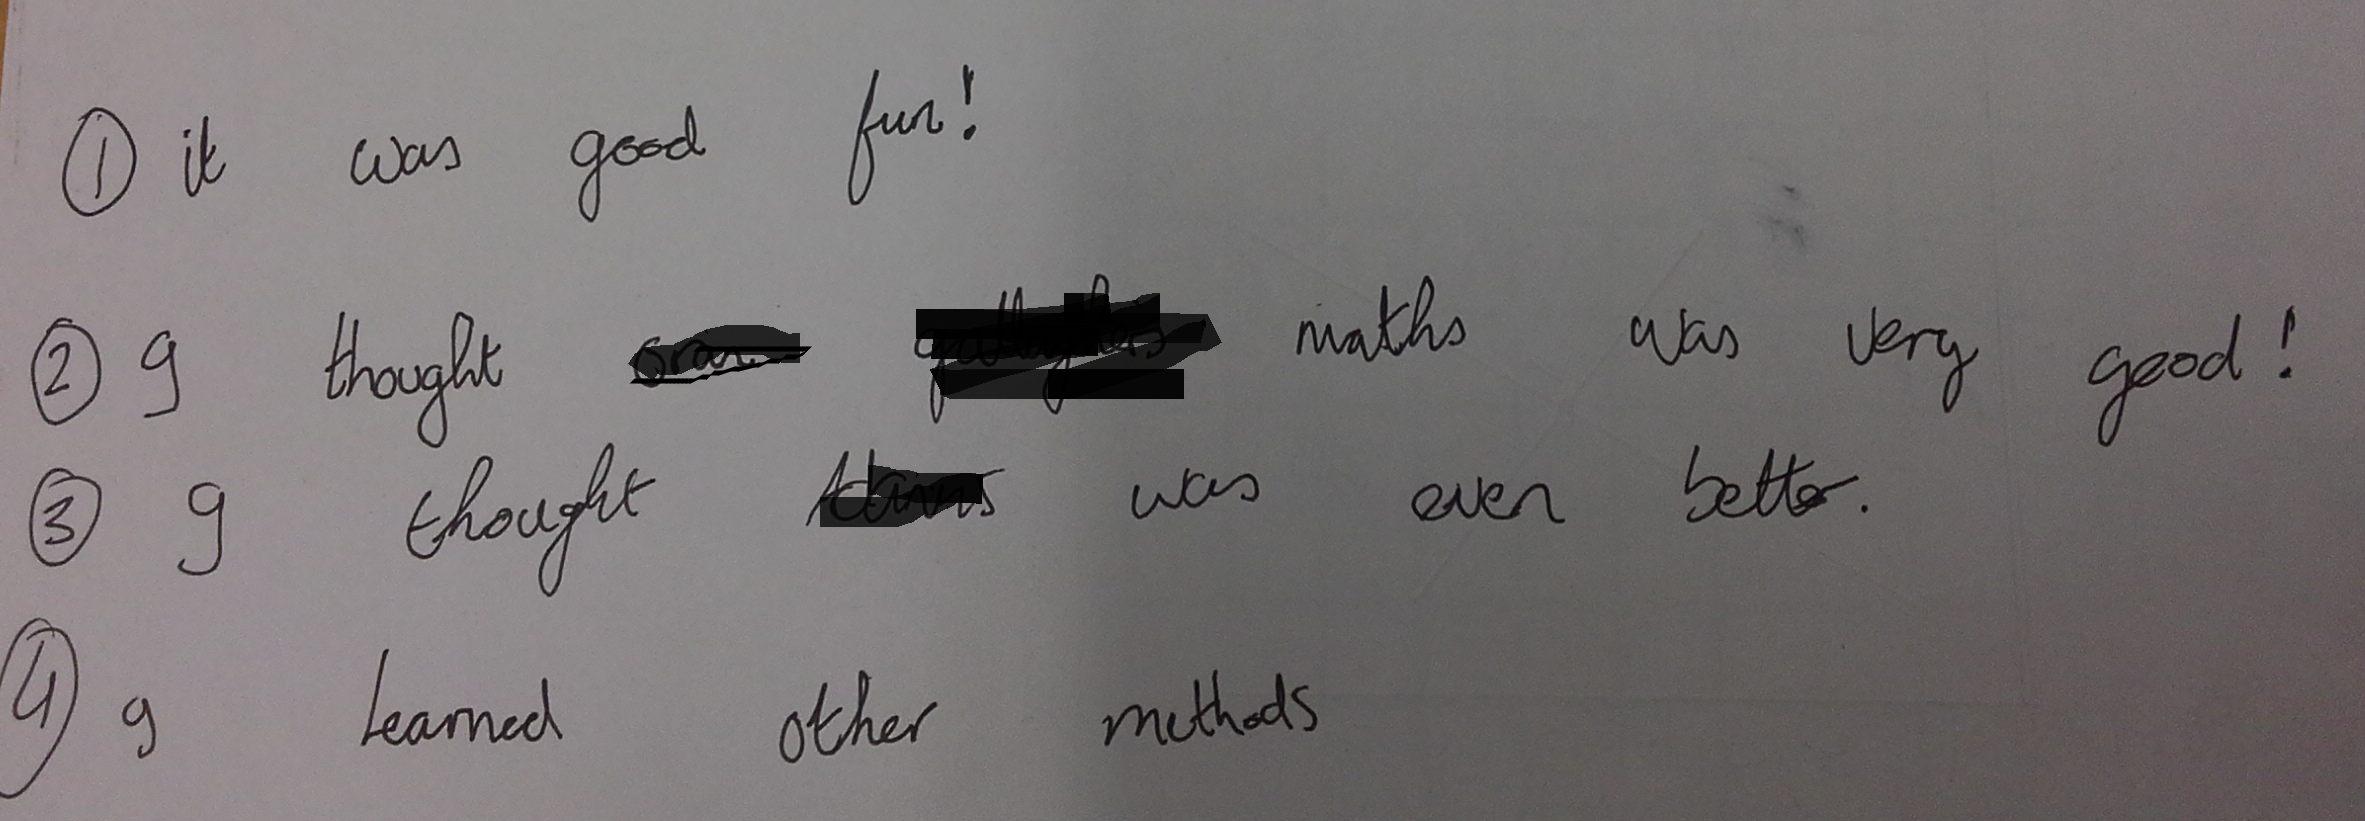 ① it was good fun!
② I thought maths was very good!
③ I thought was even better.
④ I learned other methods